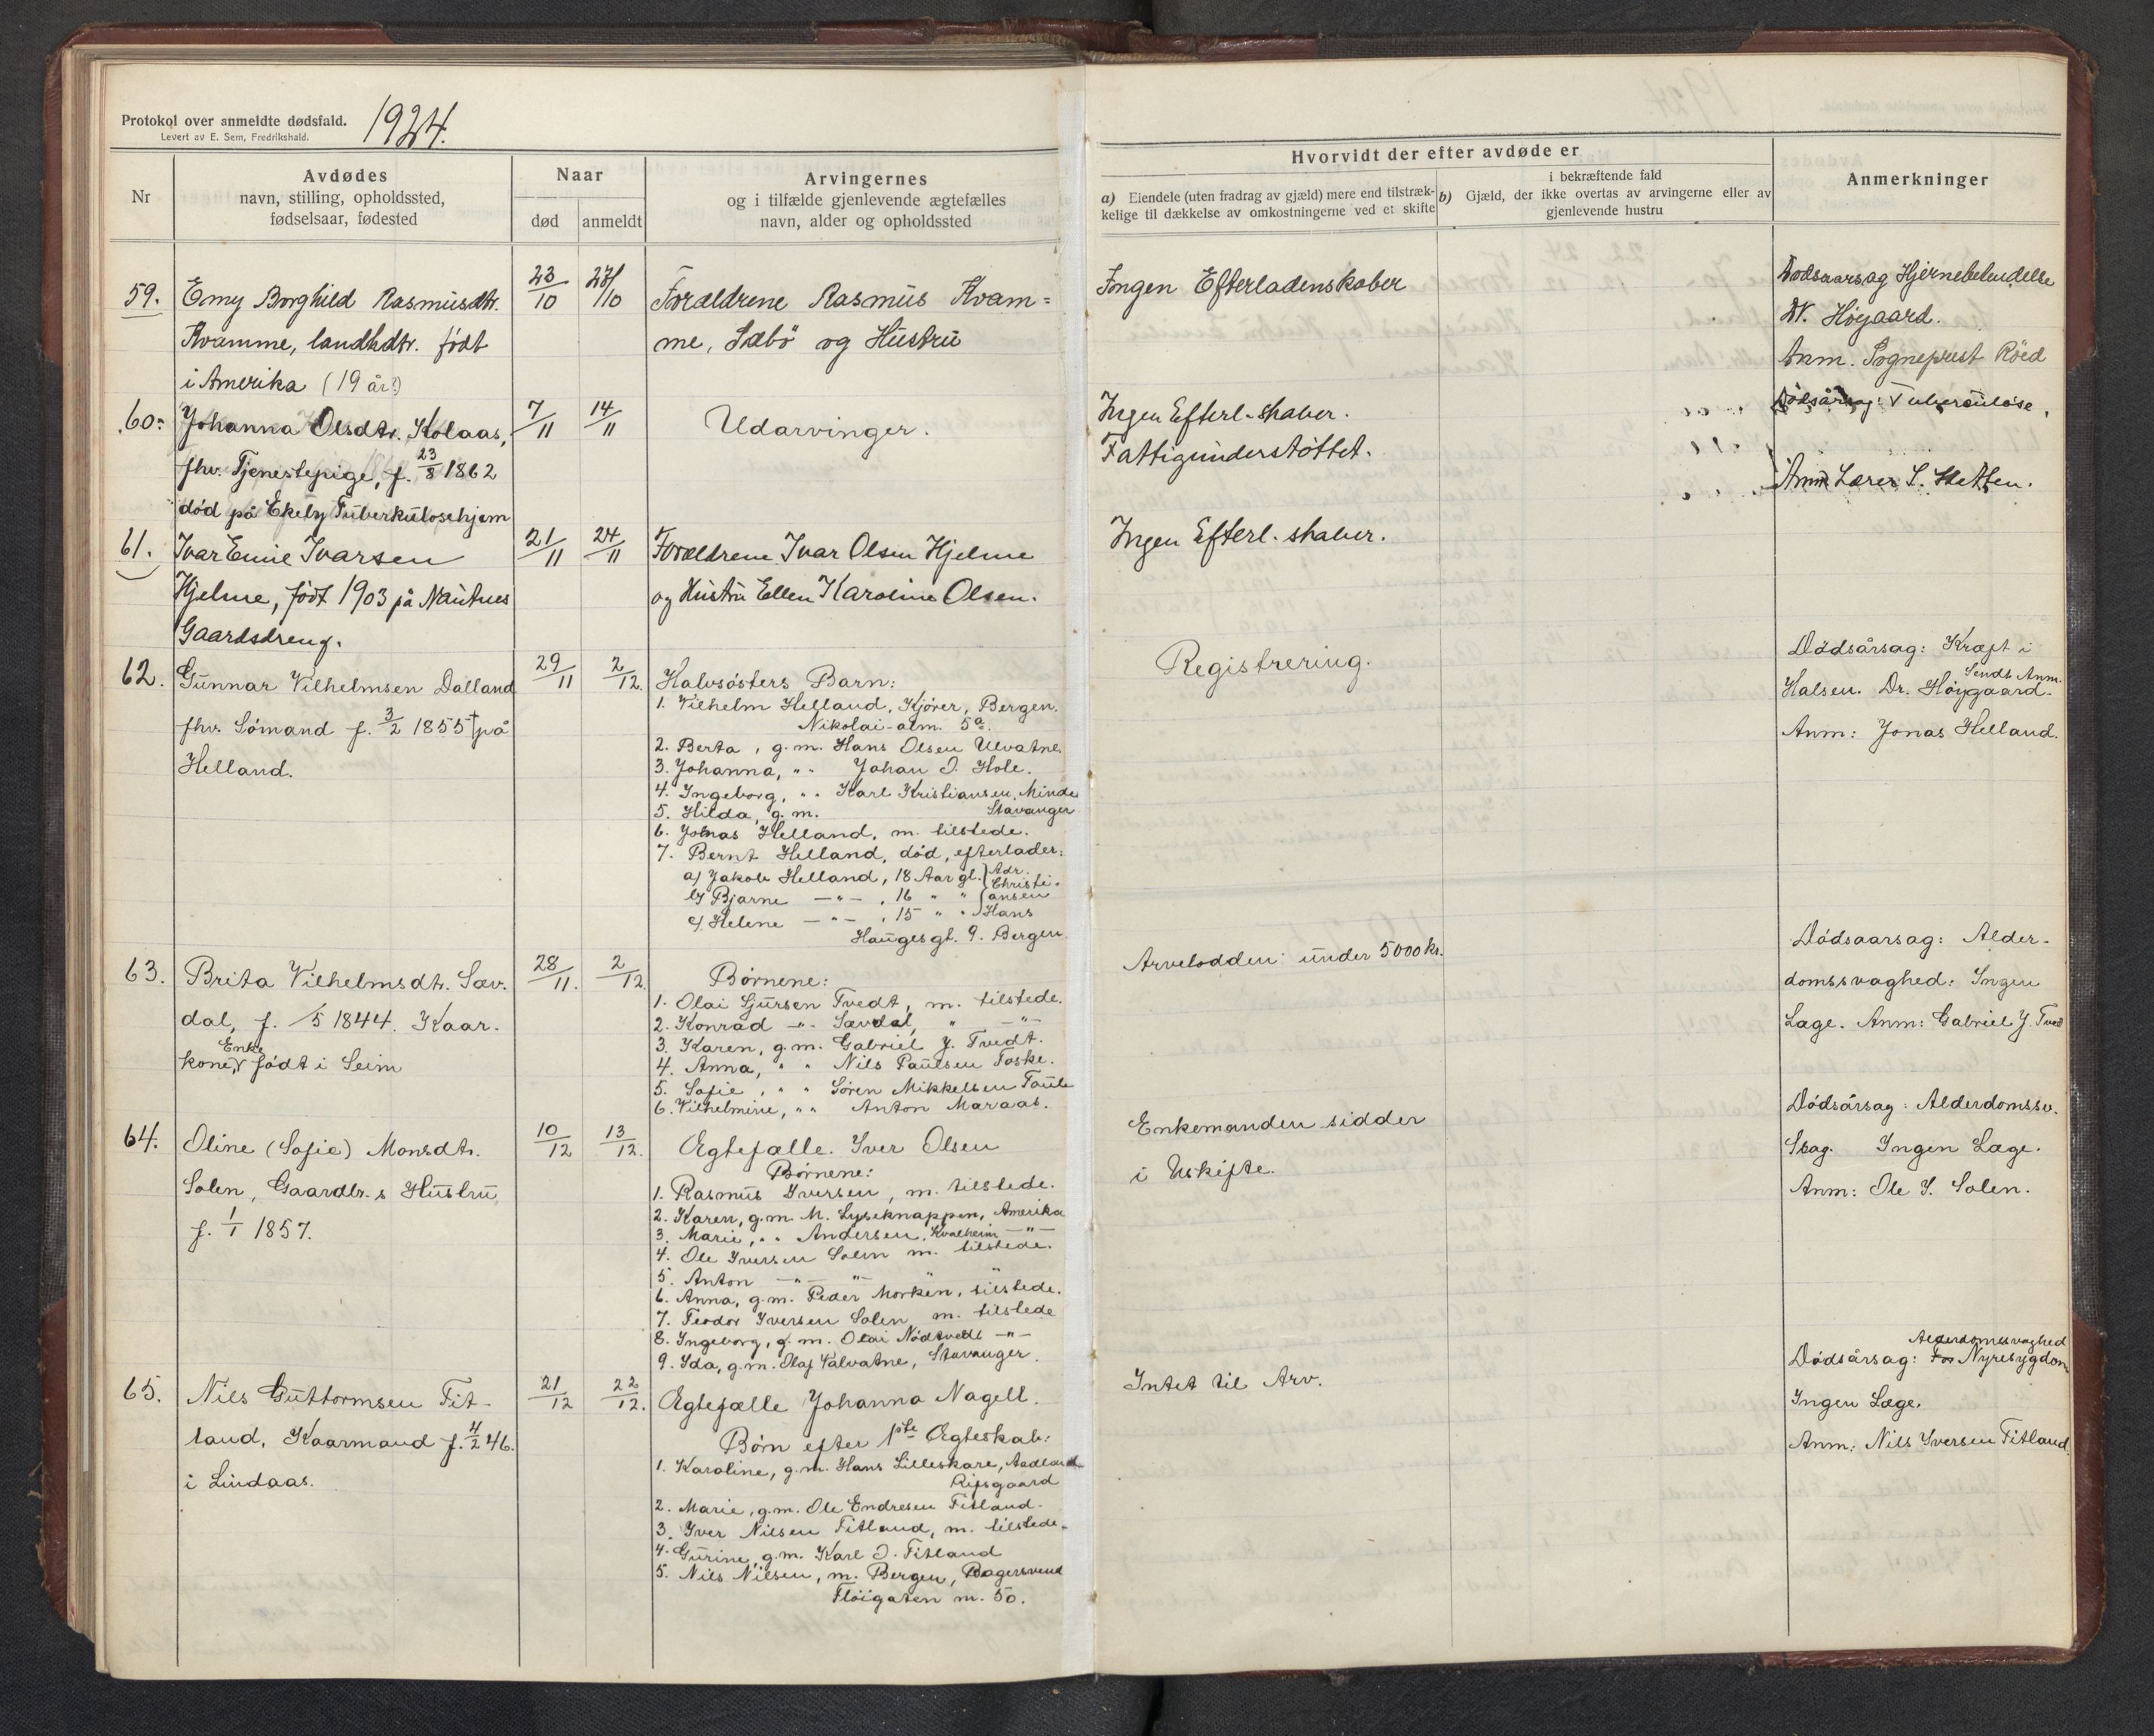 Protokol over anmeldte dødsfald.
Levert av E. Sem, Fredrikshald.
1924.
Nr
Avdødes
navn, stilling, opholdssted,
fødselsaar, fødested
Naar
død
anmeldt
Arvingernes
og i tilfælde gjenlevende ægtefælles
navn, alder og opholdssted
Hvorvidt der efter avdøde er
a) Eiendele (uten fradrag av gjæld) mere end tilstræk-
kelige til dækkelse av omkostningerne ved et skifte
i bekræftende fald
b) Gjæld, der ikke overtas av arvingerne eller av
gjenlevende hustru
Anmerkninger
59.
Emy Borghild Rasmusdtr.
Kvamme, landhdtr. født
i Amerika (19 år?)
23/10
27/10
Forældrene Rasmus Kvam=
me, Sæbö og Hustru
Ingen Efterladenskaber
Dødsaarsag Hjernebetendelse
Dr. Høygaard.
Anm. Sogneprest Röed
60.
Johanna Olsdtr. Kolaas,
fhv. Tjenestepige, f. 23/8 1862
død på Ekely Tuberkulosehjem
7/11
14/11
Udarvinger.
Ingen Efterl.skaber.
Fattigunderstøttet.
Dödsårsag: Tuberculose.
Anm Lærer S. Sletten.
61.
Ivar Emil Ivarsen
Hjelme, født 1903 på Nautnes
Gaardsdreng.
21/11
24/11
Forældrene Ivar Olsen Hjelme
og Hustru Ellen Karoline Olsen.
Ingen Efterl.skaber.
62.
Gunnar Vilhelmsen Dalland
fhv. Sömand f. 3/2 1855 † på
Helland.
29/11
2/12.
Halvsösters Barn:
1. Vilhelm Helland, Kjörer, Bergen.
Nikolai-alm. 5a.
2. Berta, g.m. Hans Olsen Ulvatne
3. Johanna, " " Johan I. Hole.
4. Ingeborg, " " Karl Kristiansen, Minde
5. Hilda, g.m. Stavanger
6. Jonas Helland, m. tilstede.
7. Bernt Helland, död, efterlader:
a) Jakob Helland, 18 Aar gl. } Adr.
Christi-
b) Bjarne — " — , 16 " " } ansen
c) Helene — " — , 15 " " } Hans
Haugesgt. 9. Bergen
Registrering.
Dödsårsag: Kræft i
Sendt Anm.
Halsen. Dr. Höygaard.
Anm: Jonas Helland.
63.
Brita Vilhelmsdtr. Sæv.
dal, f. /5 1844. Kaar.
Enke
kone, født i Seim
28/11.
2/12
Börnene:
1. Olai Sjursen Tvedt, m. tilstede.
2. Konrad — " — Sævdal, " — " —
3. Karen, g.m. Gabriel J. Tvedt.
4. Anna, " " Nils Paulsen Toske.
5. Sofie, " " Sören Mikkelsen Toule
6. Vilhelmine, " " Anton Maraas.
Arvelodden: under 5000 kr.
Dödsaarsag: Alder-
domssvaghed: Ingen
Læge. Anm: Gabriel J. Tved
64.
Oline (Sofie) Monsdtr.
Solen, Gaardbr.s Hustru,
f. 1/1 1857.
10/12
13/12.
Ægtefælle. Iver Olsen
Börnene:
1. Rasmus Iversen, m. tilstede.
2. Karen, g.m. M. Lyseknappen, Amerika
3. Marie, " " Andersen, Kvalheim — " —
4. Ole Iversen Solen m. tilstede.
5. Anton — " — " —
6. Anna, g.m. Peder Morken, tilstede.
7. Teodor Iversen Solen m. tilstede
8. Ingeborg, g.m. Olai Nödtvedt — " —
9. Ida, g.m. Olaf Valvatne, Stavanger.
Enkemanden sidder
i Uskifte.
Dödsårsag: Alderdomssv.
Slag. Ingen Læge.
Anm: Ole I. Solen.
65.
Nils Guttormsen Fit-
land, Kaarmand f. 4/2 46.
i Lindaas.
21/12
22/12.
Ægtefælle Johanna Nagell.
Börn efter 1ste Ægteskab:
1. Karoline, g.m. Hans Lilleskare, Aadland
Ripsgaard
2. Marie, g.m. Ole Endresen Fitland.
3. Iver Nilsen Fitland, m. tilstede.
4. Gurine, g.m. Karl I. Fitland
5. Nils Nilsen, m. Bergen, Bagersvend
Flöigaten m. 50.
Intet til Arv.
Alderdomssvaghed
Dödsårsag: For Nyresygdom
Ingen Læge.
Anm: Nils Iversen Fitland.